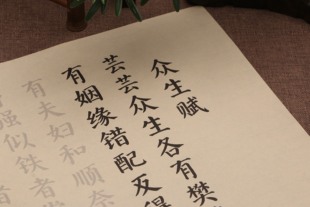 众生赋
芸芸众生各有樊
有姻缘错配反得
有夫妇和顺奈
强似铁者